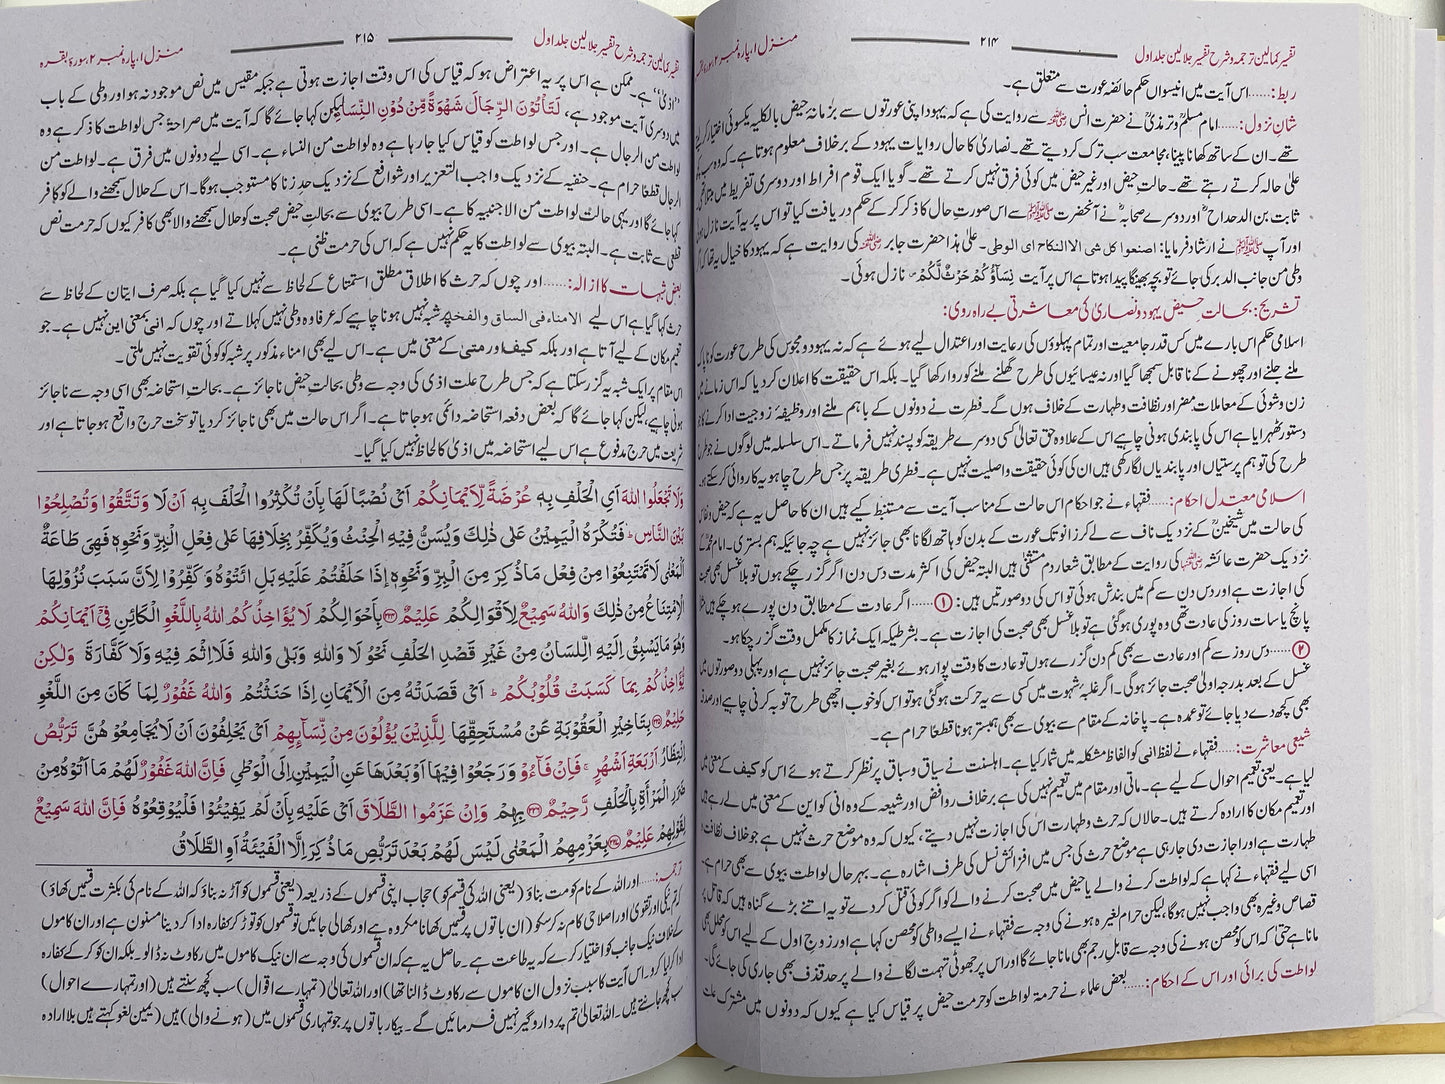 تفسیر کمالین ترجمہ و شرح تفسیر جلالین جلد اول
۲۱۴
منزل ۱، پارہ نمبر ۲، سورۂ بقرہ
ربط:...... اس آیت میں انیسواں حکم حائضہ عورت سے متعلق ہے۔
شان نزول:...... امام مسلمؒ و ترمذیؒ نے حضرت انس سے روایت کی ہے کہ یہود اپنی عورتوں سے بزمانۂ حیض بالکلیہ یکسوئی اختیار
تھے۔ ان کے ساتھ کھانا پینا، مجامعت سب ترک کردیتے تھے۔ نصاریٰ کا حال روایات یہود کے برخلاف معلوم ہوتا ہے۔ کہ وہ سب
علیٰ حالہ کرتے رہتے تھے۔ حالتِ حیض اور غیر حیض میں کوئی فرق نہیں کرتے تھے۔ گویا ایک قوم افراط اور دوسری تفریط میں
ثابت بن الدحداحؓ اور دوسرے صحابہؓ نے آنحضرت ﷺ سے اس صورتِ حال کا ذکر کرکے حکم دریافت کیا تو اس پر یہ آیت نازل
اور آپ ﷺ نے ارشاد فرمایا: اصنعوا کل شی الا النکاح ای الوطی۔ علیٰ ہذا حضرت جابر کی روایت ہے کہ یہود کا خیال یہ تھا
وطی من جانب الدبر کی جائے تو بچہ بھینگا پیدا ہوتا ہے اس پر آیت نِسَآؤُكُمْ حَرْثٌ لَّكُمْ نازل ہوئی۔
تشریح: بحالت حیض یہود و نصاریٰ کی معاشرتی بے راہ روی:
اسلامی حکم اس بارے میں کس قدر جامعیت اور تمام پہلوؤں کی رعایت اور اعتدال لیے ہوئے ہے کہ نہ یہود و مجوس کی طرح عورت کو ناپاک
ملنے جلنے اور چھونے کے ناقابل سمجھا گیا اور نہ عیسائیوں کی طرح گھلنے ملنے کو روا رکھا گیا۔ بلکہ اس حقیقت کا اعلان کردیا کہ اس زمانے میں
زن و شوئی کے معاملات مضر اور نظافت و طہارت کے خلاف ہوں گے۔ فطرت نے دونوں کے باہم ملنے اور وظیفۂ زوجیت ادا کرنے کا
دستور ٹھہرایا ہے اس کی پابندی ہونی چاہیے اس کے علاوہ حق تعالیٰ کسی دوسرے طریقہ کو پسند نہیں فرماتے۔ اس سلسلہ میں لوگوں نے جو طرح
طرح کی توہم پرستیاں اور پابندیاں لگا رکھی ہیں ان کی کوئی حقیقت و اصلیت نہیں ہے۔ فطری طریقہ پر جس طرح چاہو یہ کاروائی کرسکتے ہو۔
اسلامی معتدل احکام:...... فقہاء نے جو احکام اس حالت کے مناسب آیت سے مستنبط کیے ہیں ان کا حاصل یہ ہے کہ حیض و نفاس
کی حالت میں شیخینؒ کے نزدیک ناف سے لے کر زانو تک عورت کے بدن کو ہاتھ لگانا بھی جائز نہیں ہے چہ جائیکہ ہم بستری۔ امام محمدؒ کے
نزدیک حضرت عائشہ کی روایت کے مطابق شعار دم مستثنیٰ ہیں البتہ حیض کی اکثر مدت دس دن اگر گزر چکے ہوں تو بلا غسل بھی صحبت
کی اجازت ہے اور دس دن سے کم میں بندش ہوئی تو اس کی دو صورتیں ہیں: ①...... اگر عادت کے مطابق دن پورے ہوچکے ہیں
پانچ یا سات روز کی عادت تھی وہ پوری ہوگئی ہے تو بلا غسل بھی صحبت کی اجازت ہے۔ بشرطیکہ ایک نماز کا مکمل وقت گزر چکا ہو۔
②...... دس روز سے کم اور عادت سے بھی کم دن گزرے ہوں تو عادت کا وقت پوار ہوئے بغیر صحبت جائز نہیں ہے اور پہلی دو صورتوں میں
غسل کے بعد بدرجہ اولیٰ صحبت جائز ہوگی۔ اگر غلبۂ شہوت میں کسی سے یہ حرکت ہوگئی ہو تو اس کو خوب اچھی طرح توبہ کرنی چاہیے اور صدقہ
بھی کچھ دے دیا جائے تو عمدہ ہے۔ پاخانہ کے مقام سے بیوی سے بھی ہمبستر ہونا قطعاً حرام ہے۔
شیعی معاشرت:...... فقہاء نے لفظ انی کو الفاظ مشکلہ میں شمار کیا ہے۔ اہلسنت نے سیاق و سباق پر نظر کرتے ہوئے اس کو کیف کے معنی میں
لیا ہے۔ یعنی تعمیم احوال کے لیے ہے۔ ماتی اور مقام میں تعمیم نہیں کی ہے برخلاف روافض اور شیعہ کے وہ انی کو این کے معنی میں لے رہے ہیں
اور تعمیم مکان کا ارادہ کرتے ہیں۔ حالاں کہ حرث و طہارت اس کی اجازت نہیں دیتے، کیوں کہ وہ موضع حرث نہیں ہے جو خلاف نظافت و
طہارت ہے اور اجازت دی جارہی ہے موضع حرث کی جس میں افزائش نسل کی طرف اشارہ ہے۔ بہر حال لواطت بیوی سے بھی حرام ہے۔
اسی لیے فقہاء نے کہا ہے کہ لواطت کرنے والے یا حیض میں صحبت کرنے والے کو اگر کوئی قتل کردے تو یہ اتنے بڑے گناہ ہیں کہ قاتل پر
قصاص وغیرہ بھی واجب نہیں ہوگا، لیکن حرام لغیرہ ہونے کی وجہ سے فقہاء نے ایسے واطی کو محصن کہا ہے اور زوج اول کے لیے اس کو محلل بھی
مانا ہے حتیٰ کہ اس کو محصن ہونے کی وجہ سے قابل رجم بھی مانا جائے گا اور اس پر جھوٹی تہمت لگانے والے پر حد قذف بھی جاری کی جائے گی۔
لواطت کی برائی اور اس کے احکام:...... بعض علماء نے حرمۃ لواطت کو حرمتِ حیض پر قیاس کیا ہے کیوں کہ دونوں میں مشترک علت
تفسیر کمالین ترجمہ و شرح تفسیر جلالین جلد اول
۲۱۵
منزل ۱، پارہ نمبر ۲، سورۂ بقرہ
"اذیٰ" ہے۔ ممکن ہے اس پر یہ اعتراض ہو کہ قیاس کی اس وقت اجازت ہوتی ہے جبکہ مقیس میں نص موجود نہ ہو اور وطی کے باب
میں دوسری آیت موجود ہے، لَتَأْتُوْنَ الرِّجَالَ شَهْوَةً مِّنْ دُوْنِ النِّسَاءِ لیکن کہا جائے گا کہ آیت میں صراحۃً جس لواطت کا ذکر ہے وہ
لواطت من الرجال ہے۔ اور جس لواطت کو قیاس کیا جارہا ہے وہ لواطت من النساء ہے۔ اسی لیے دونوں میں فرق ہے۔ لواطت من
الرجال قطعاً حرام ہے۔ حنفیہ کے نزدیک واجب التعزیر اور شوافع کے نزدیک حد زنا کا مستوجب ہوگا۔ اس کے حلال سمجھنے والے کو کافر
کہا جائے گا اور یہی حالت لواطت من الاجنبیہ کا ہے۔ اسی طرح بیوی سے بحالتِ حیض صحبت کو حلال سمجھنے والا بھی کافر کیوں کہ حرمت نص
قطعی سے ثابت ہے۔ البتہ بیوی سے لواطت کا یہ حکم نہیں ہے کہ اس کی حرمت ظنی ہے۔
بعض شبہات کا ازالہ:...... اور چوں کہ حرث کا اطلاق مطلق استمتاع کے لحاظ سے نہیں کیا گیا ہے بلکہ صرف ایتان کے لحاظ سے
حرث کہا گیا ہے اس لیے الامناء فی الساق والفخذ پر شبہ نہیں ہونا چاہیے کہ عرفاً وہ وطی نہیں کہلاتے اور چوں کہ انی بمعنی این نہیں ہے۔ جو
تعمیم مکان کے لیے آتا ہے اور بلکہ کیف اور متیٰ کے معنی میں ہے۔ اس لیے بھی امناء مذکور پر شبہ کو کوئی تقویت نہیں ملتی۔
اس مقام پر ایک شبہ یہ گزر سکتا ہے کہ جس طرح علت اذی کی وجہ سے وطی بحالتِ حیض ناجائز ہے۔ بحالتِ استحاضہ بھی اسی وجہ سے ناجائز
ہونی چاہیے، لیکن کہا جائے گا کہ بعض دفعہ استحاضہ دائمی ہوجاتا ہے۔ اگر اس حالت میں بھی ناجائز کردیا تو سخت حرج واقع ہوجاتا ہے اور
شریعت میں حرج مدفوع ہے اس لیے استحاضہ میں اذیٰ کا لحاظ نہیں کیا گیا۔
وَلَا تَجْعَلُوا اللّٰهَ اَيِ الْحَلْفَ بِهٖ عُرْضَةً لِّاَيْمَانِكُمْ اَيْ نُصْبًا لَهَا بِاَنْ تُكْثِرُوا الْحَلْفَ بِهٖ اَنْ لَا وَتَتَّقُوْا وَتُصْلِحُوْا
بَيْنَ النَّاسِ ؕ فَتُكْرَهُ الْيَمِيْنُ عَلٰى ذٰلِكَ وَيُسَنُّ فِيْهِ الْحِنْثُ وَيُكَفِّرُ بِخِلَافِهَا عَلٰى فِعْلِ الْبِرِّ وَنَحْوِهٖ فَهِيَ طَاعَةٌ
اَلْمَعْنٰى لَا تَمْتَنِعُوْا مِنْ فِعْلِ مَاذُكِرَ مِنَ الْبِرِّ وَنَحْوِهٖ اِذَا حَلَفْتُمْ عَلَيْهِ بَلِ ائْتُوْهُ وَكَفِّرُوْا لِاَنَّ سَبَبَ نُزُوْلِهَا
الْاِمْتِنَاعُ مِنْ ذٰلِكَ وَاللّٰهُ سَمِيْعٌ لِاَقْوَالِكُمْ عَلِيْمٌ ﴿۲۲۴﴾ بِاَحْوَالِكُمْ لَا يُؤَاخِذُكُمُ اللّٰهُ بِاللَّغْوِ الْكَائِنِ فِيْٓ اَيْمَانِكُمْ
وَهُوَ مَايَسْبِقُ اِلَيْهِ اللِّسَانُ مِنْ غَيْرِ قَصْدِ الْحَلْفِ نَحْوُ لَا وَاللّٰهِ وَبَلٰى وَاللّٰهِ فَلَا اِثْمَ فِيْهِ وَلَا كَفَّارَةَ وَلٰكِنْ
يُّؤَاخِذُكُمْ بِمَا كَسَبَتْ قُلُوْبُكُمْ ؕ اَيْ قَصَدَتْهُ مِنَ الْاَيْمَانِ اِذَا حَنَثْتُمْ وَاللّٰهُ غَفُوْرٌ لِمَا كَانَ مِنَ اللَّغْوِ
حَلِيْمٌ ﴿۲۲۵﴾ بِتَاخِيْرِ الْعُقُوْبَةِ عَنْ مُسْتَحِقِّهَا لِلَّذِيْنَ يُؤْلُوْنَ مِنْ نِّسَآىِٕهِمْ اَيْ يَحْلِفُوْنَ اَنْ لَا يُجَامِعُوْ هُنَّ تَرَبُّصُ
اِنْتِظَارُ اَرْبَعَةِ اَشْهُرٍ ۚ فَاِنْ فَآءُوْ وَرَجَعُوْا فِيْهَا اَوْ بَعْدَهَا عَنِ الْيَمِيْنِ اِلَى الْوَطْيِ فَاِنَّ اللّٰهَ غَفُوْرٌ لَهُمْ مَا اَتَوْهُ مِنْ
ضَرَرِ الْمَرْأَةِ بِالْحَلْفِ رَّحِيْمٌ ﴿۲۲۶﴾ بِهِمْ وَاِنْ عَزَمُوا الطَّلَاقَ اَيْ عَلَيْهِ بِاَنْ لَمْ يَفِيْئُوْا فَلْيُوْقِعُوْهُ فَاِنَّ اللّٰهَ سَمِيْعٌ
لِقَوْلِهِمْ عَلِيْمٌ ﴿۲۲۷﴾ بِعَزْمِهِمْ اَلْمَعْنٰى لَيْسَ لَهُمْ بَعْدَ تَرَبُّصِ مَاذُكِرَ اِلَّا الْفَيْئَةُ اَوِ الطَّلَاقُ
ترجمہ:...... اور اللہ کے نام کو مت بناؤ (یعنی اللہ کی قسم کو) حجاب اپنی قسموں کے ذریعہ (یعنی قسموں کو آڑ نہ بناؤ کہ اللہ کے نام کی بکثرت قسمیں کھاؤ)
کہ تم نیکی اور تقویٰ اور اصلاحی کام نہ کرسکو (ان باتوں پر قسمیں کھانا مکروہ ہے اور کھالی جائیں تو قسموں کو توڑ کر کفارہ ادا کردینا مسنون ہے اور ان کاموں
کے خلاف نیک جانب کو اختیار کرے کہ یہ طاعت ہے۔ حاصل یہ ہے کہ ان قسموں کی وجہ سے ان نیک کاموں میں رکاوٹ نہ ڈالو۔ بلکہ ان کو کرکے کفارہ
ادا کرلیا کرو۔ اس آیت کا سبب نزول ان کاموں سے رکاوٹ ڈالنا تھا) اور اللہ تعالیٰ (تمہارے اقوال) سب کچھ سنتے ہیں (اور تمہارے احوال)
سب کچھ جانتے ہیں۔ اللہ تعالیٰ تم پر دارو گیر نہیں فرمائیں گے۔ بیکار باتوں پر جو تمہاری قسموں میں (ہونے والی) ہیں (یمین لغو کہتے ہیں بلا ارادہ